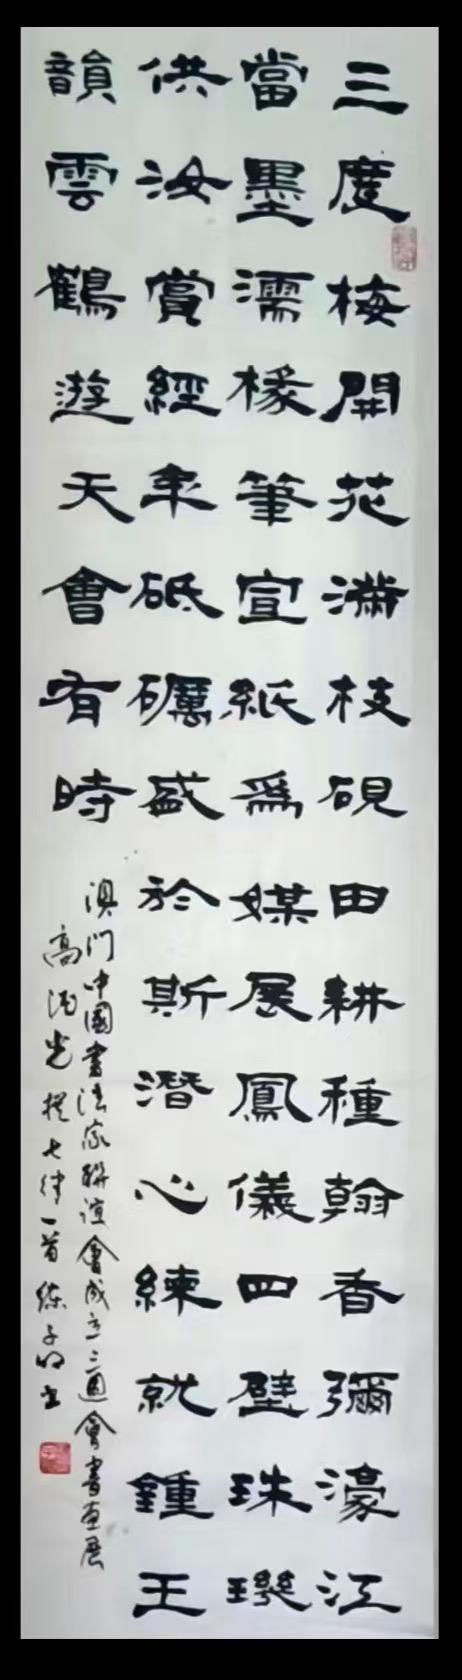 三度梅開花滿枝硯田耕種翰香彌濠江
當墨濡椽筆宣紙爲媒展鳳儀四壁珠璣
供汝賞經年砥礪盛於斯潛心練就鍾王
韻雲鶴遊天會有時
澳门中國書法家聯誼會成立三週會書画展
高光撰七律一首練子明書